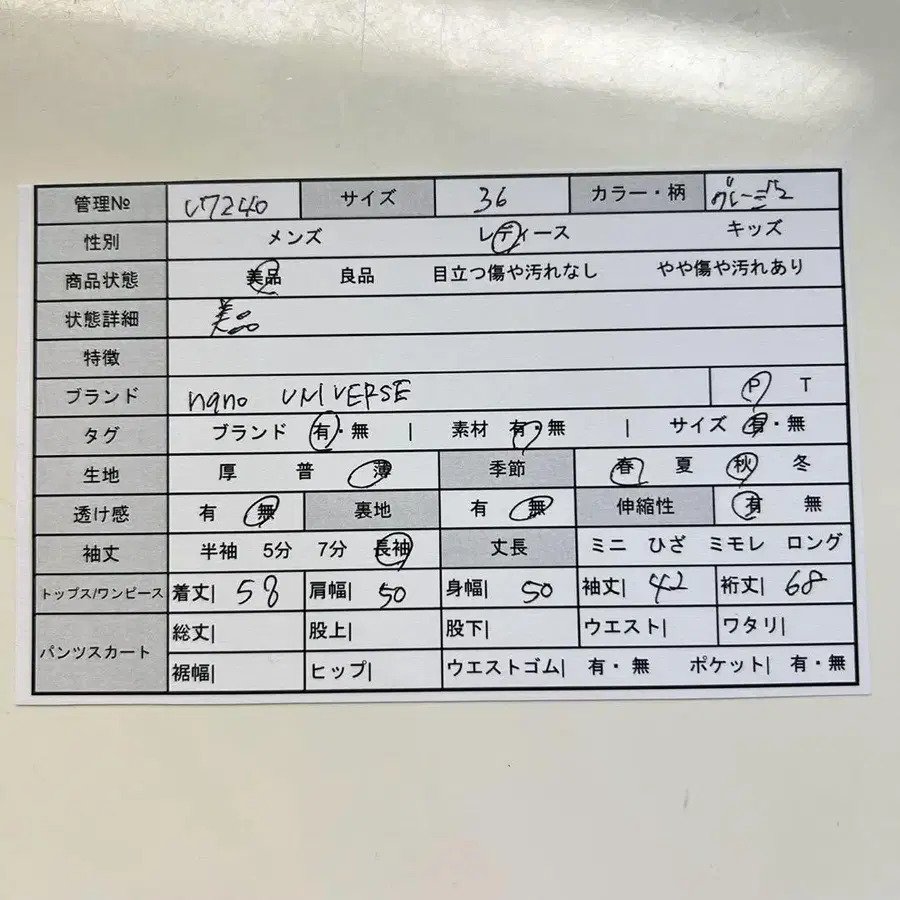 管理№ U7240 サイズ 36 カラー・柄 グレー
性別 メンズ レディース キッズ
商品状態 美品 良品 目立つ傷や汚れなし やや傷や汚れあり
状態詳細 美品
特徴
ブランド nano UNIVERSE P T
タグ ブランド 有・無 | 素材 有・無 | サイズ 有・無
生地 厚 普 薄 季節 春 夏 秋 冬
透け感 有 無 裏地 有 無 伸縮性 有 無
袖丈 半袖 5分 7分 長袖 丈長 ミニ ひざ ミモレ ロング
トップス/ワンピース 着丈| 58 肩幅| 50 身幅| 50 袖丈| 42 裄丈| 68
パンツスカート 総丈| 股上| 股下| ウエスト| ワタリ|
裾幅| ヒップ| ウエストゴム| 有・無 ポケット| 有・無